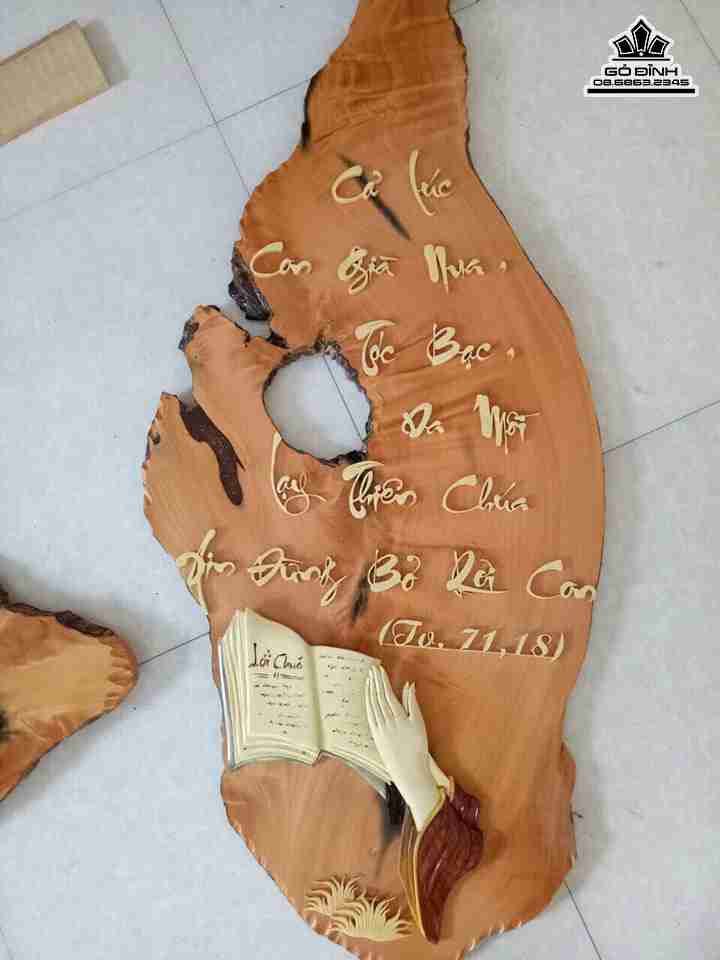 GỖ ĐỈNH
08.6863.2345
Cả lúc
Con Già Nua,
Tóc Bạc,
Da Mồi
Lạy Thiên Chúa
Xin Đừng Bỏ Rơi Con
(Tv. 71,18)
Lời Chúa